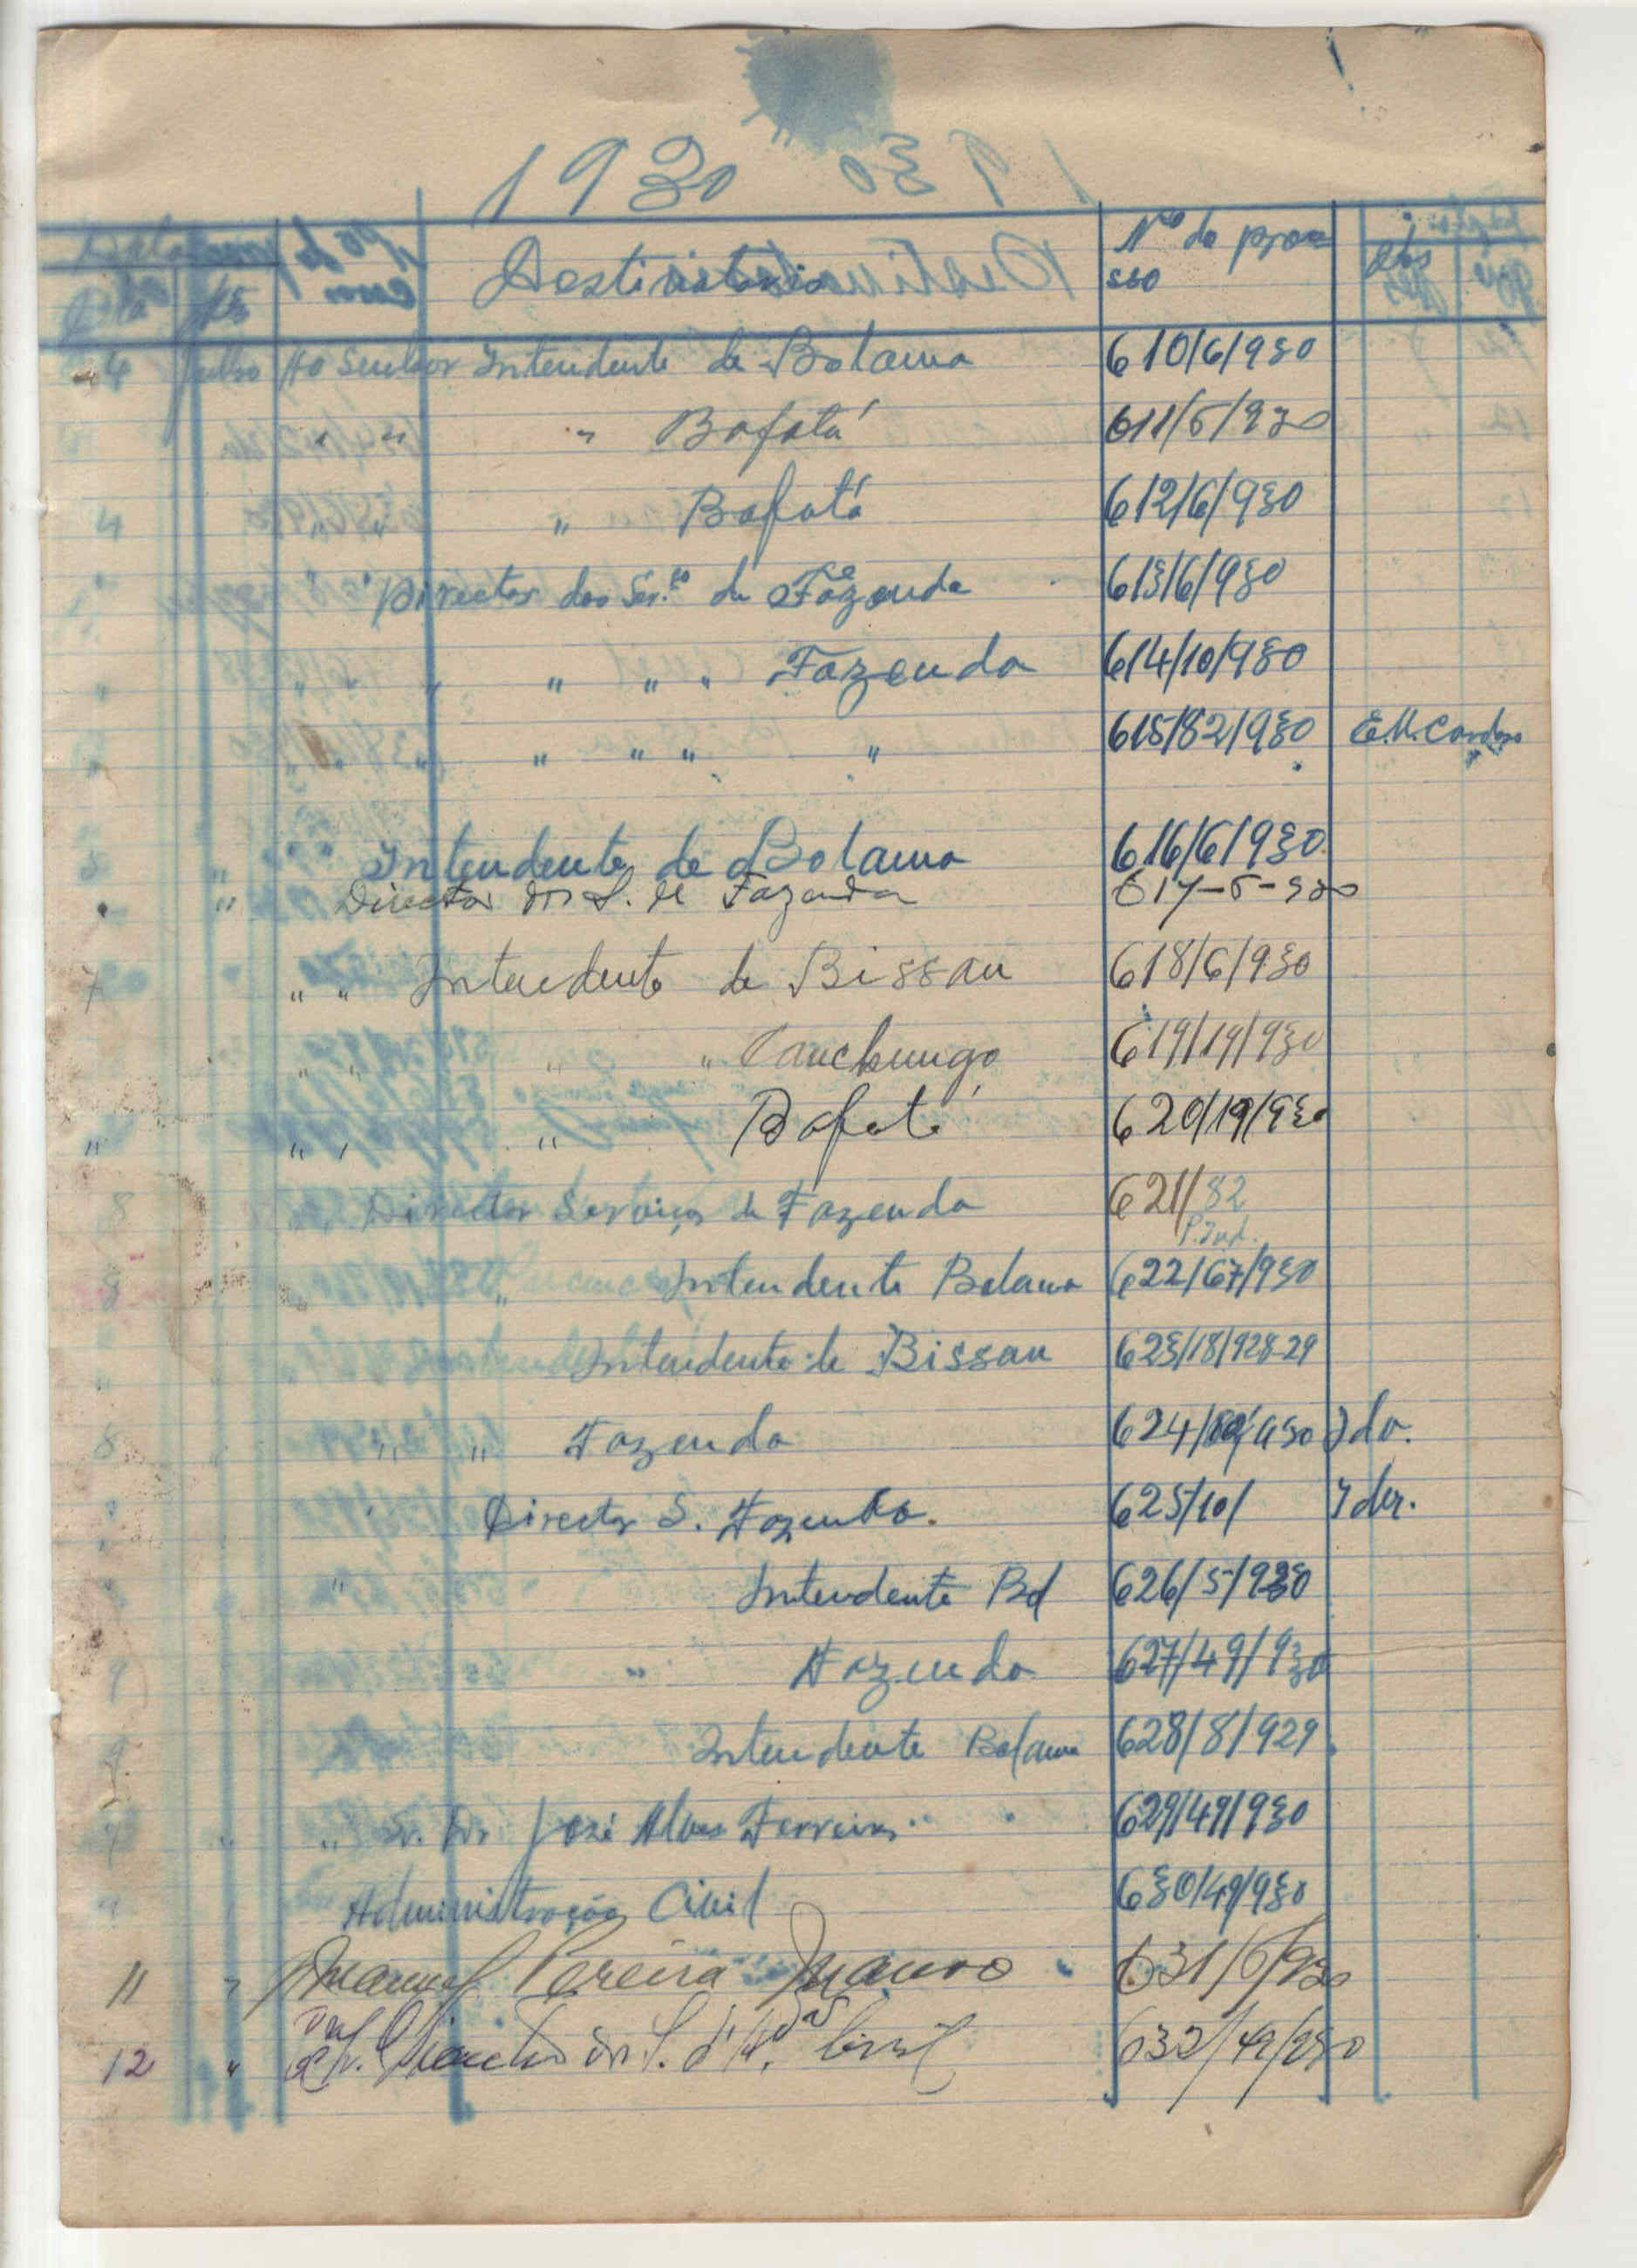 1930
Destinatario Nº do proce
sso
Dia
4 Julho Ao Senhor Intendente de Bolama 610/6/930
" " " Bafatá 611/6/930
4 " " " Bafatá 612/6/930
" Director dos Ser.ços de Fazenda 613/6/930
" " " " " " Fazenda 614/10/930
" " " " " 615/82/930 E.M. Cardoso
5 " " " Intendente de Bolama 616/6/930
" " Director dos S. de Fazenda 617-6-930
7 " " Intendente de Bissau 618/6/930
" " " " Canchungo 619/19/930
" " " " Bafatá 620/19/930
8 Director Serviços de Fazenda 621/82
P. Ind.
8 " Intendente Bolama 622/67/930
" Intendente de Bissau 623/18/928-29
8 " " Fazenda 624/ /930
Director S. Fazenda. 625/10/
" Intendente Bd 626/5/930
9 " Fazenda 627/49/930
9 Intendente Bolama 628/8/929
9 " " Sr. Dr. José Alves Ferreira 629/49/930
" Administração Civil 630/49/930
11 " Manuel Pereira 631/6/930
12 " Civil 632/49/930